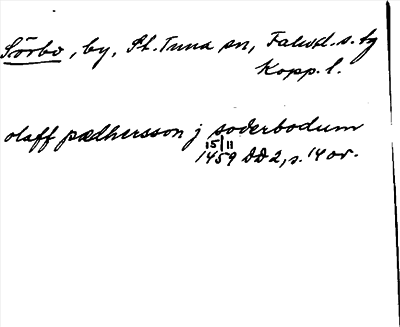 Sörbo, by, St. Tuna sn, Faluds. s. tg
Kopp. l.
olaff pædhersson j soderbodum
15/11
1459 DD 2, s. 14 or.